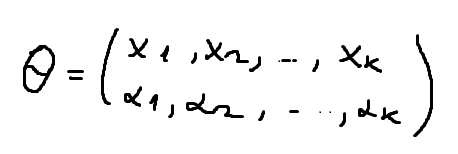 θ = ( x₁, x₂, .., xₖ
α₁, α₂, ..., αₖ )